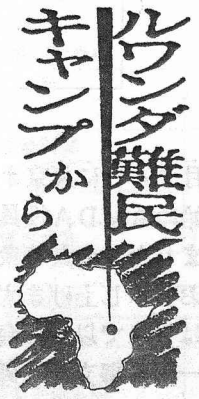 ルワンダ難民
キャンプから